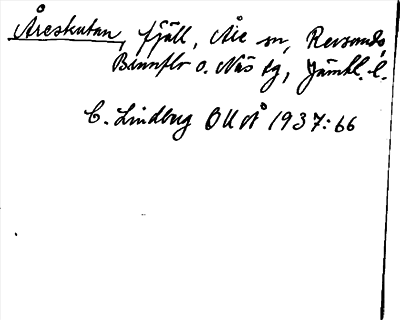 Åreskutan, fjäll, Åre sn, Revsunds,
Brunflo o. Näs tg, Jämtl. l.
C. Lindberg OUÅ 1937:66